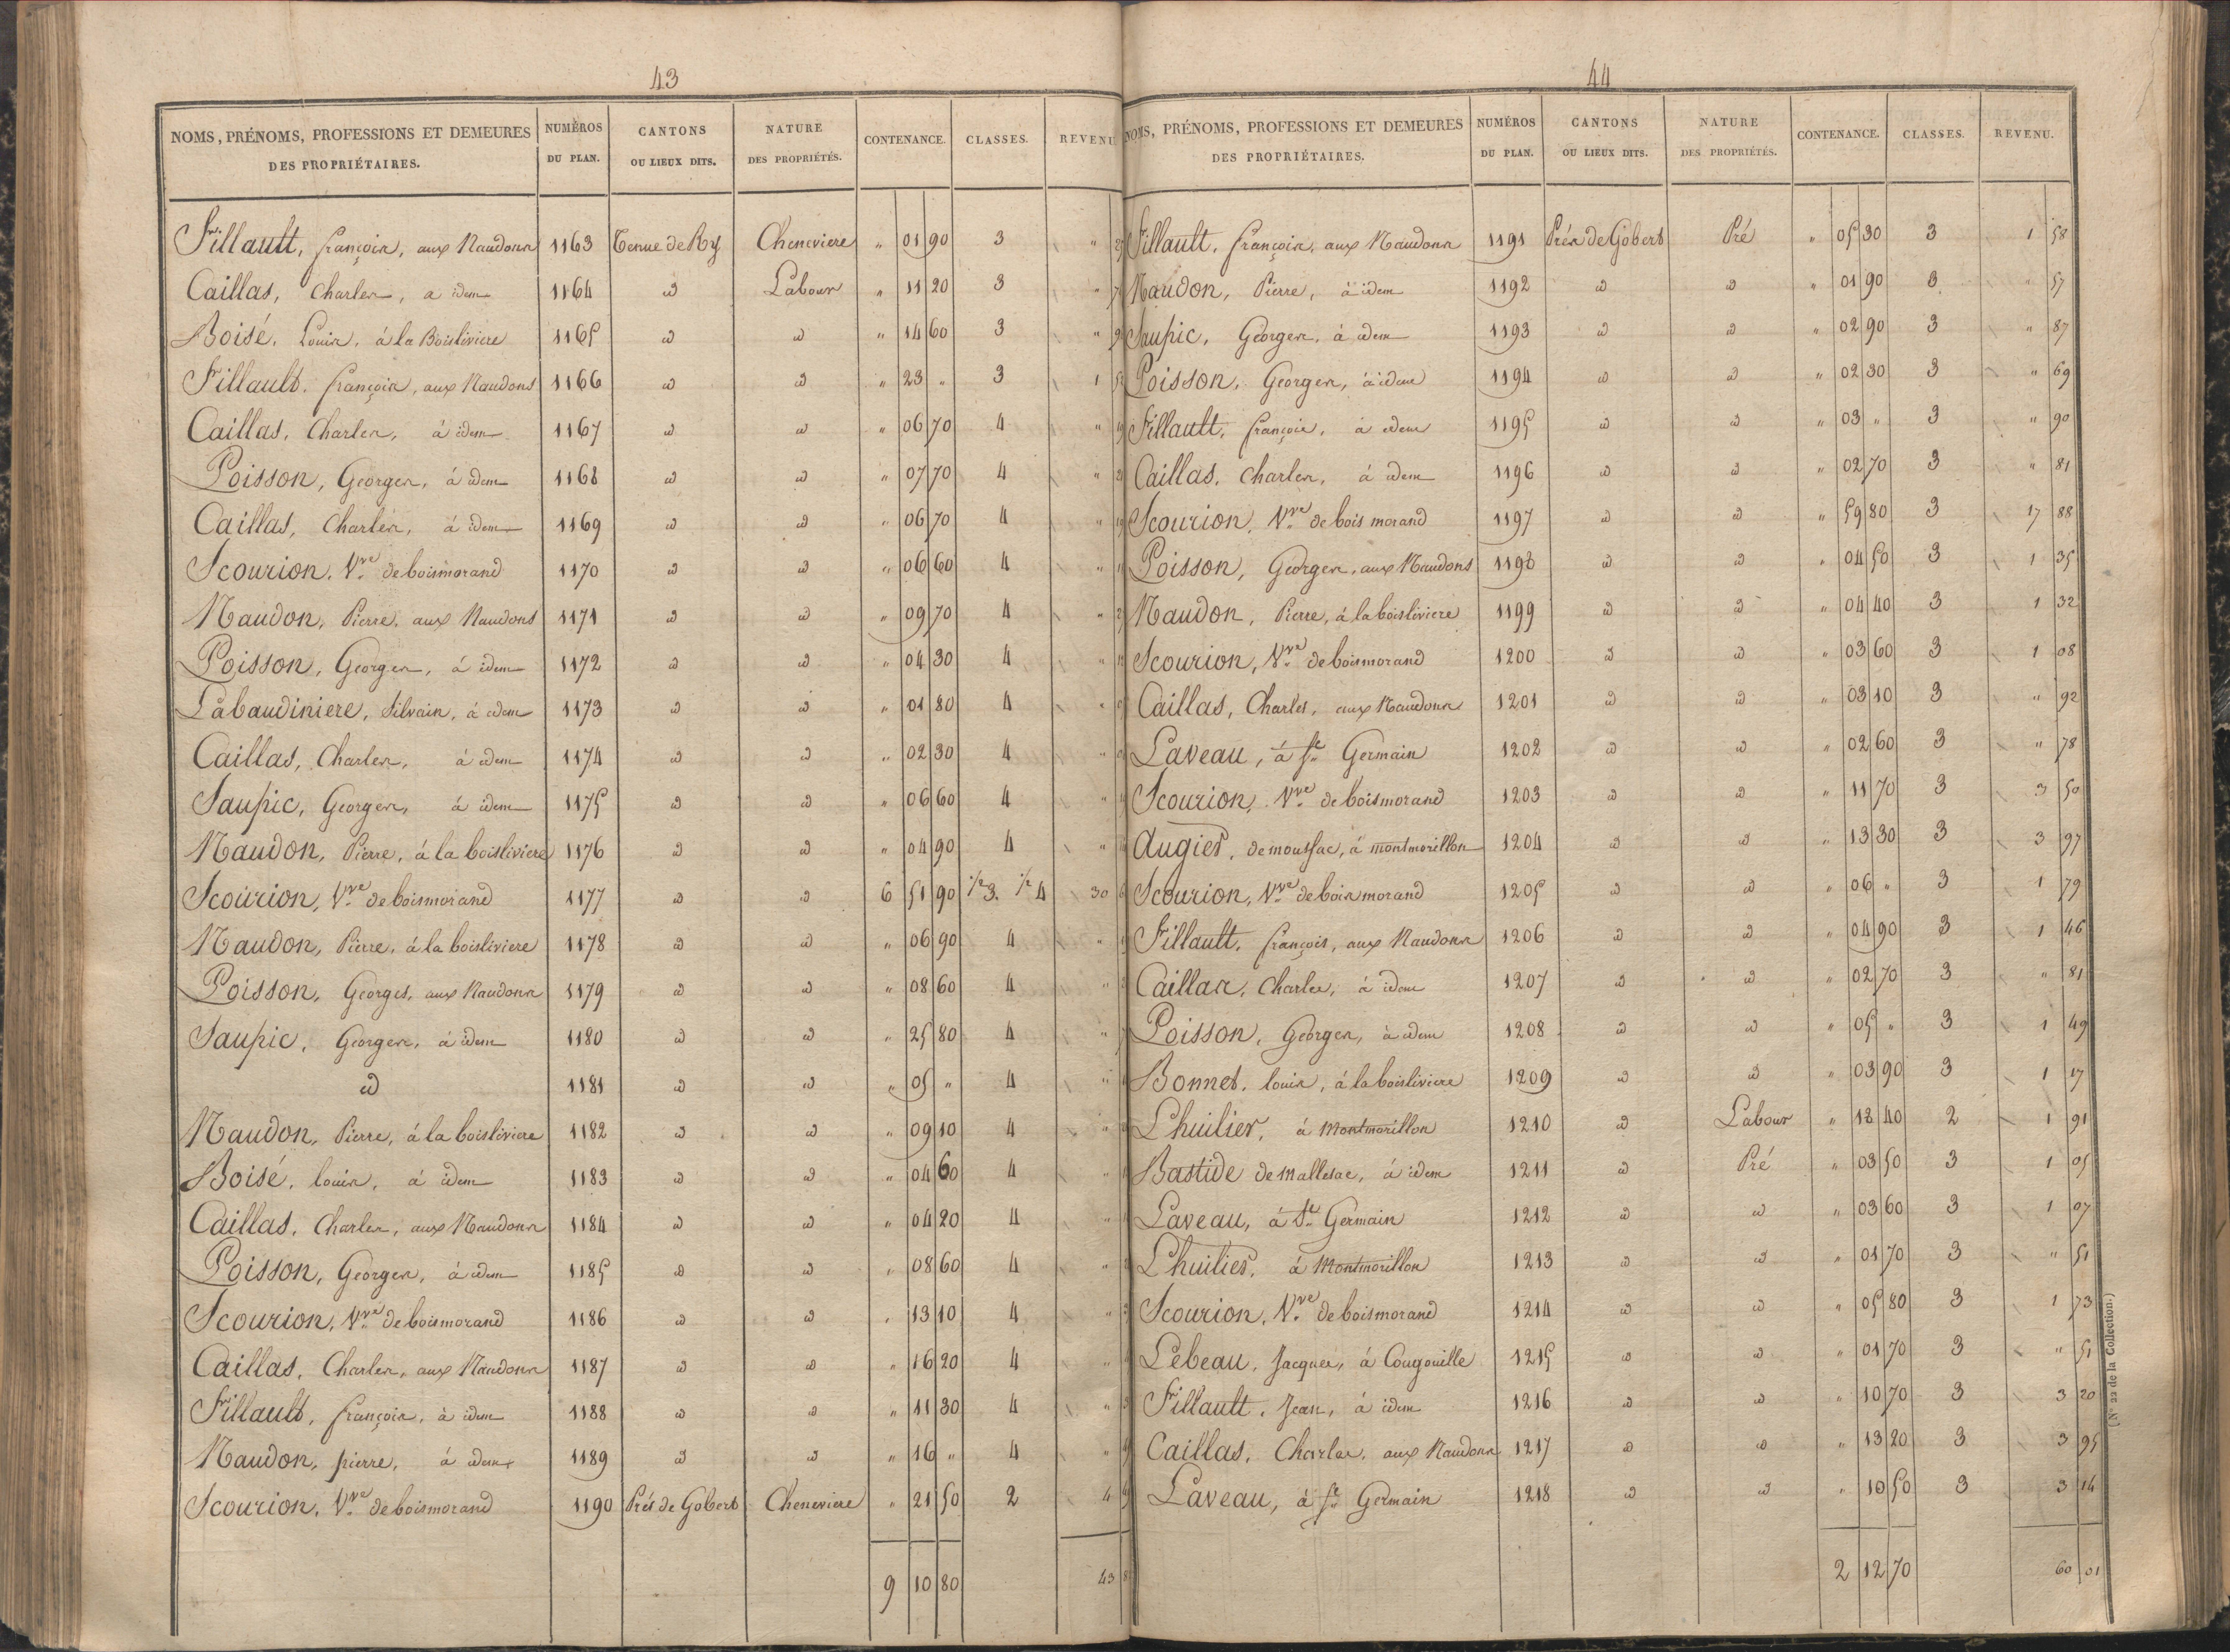 43
NOMS, PRÉNOMS, PROFESSIONS ET DEMEURES DES PROPRIÉTAIRES. NUMÉROS DU PLAN. CANTONS OU LIEUX DITS. NATURE DES PROPRIÉTÉS. CONTENANCE. CLASSES. REVENU
Fillault, françois, aux Naudons 1163 Tenue de Ry Cheneviere " 01 90 3 "
Caillas, Charles, a idem 1164 id Labour " 11 20 3 "
Boisé, Louis, à la Boisliviere 1165 id id " 14 60 3 "
Fillault, françois, aux Naudons 1166 id id " 23 " 3 1
Caillas, Charles, à idem 1167 id id " 06 70 4 "
Poisson, Georges, à idem 1168 id id " 07 70 4 "
Caillas, Charles, à idem 1169 id id " 06 70 4 "
Scourion, Vve de boismorand 1170 id id " 06 60 4 "
Naudon, Pierre, aux Naudons 1171 id id " 09 70 4 "
Poisson, Georges, à idem 1172 id id " 04 30 4 "
Labaudiniere, Silvain, à idem 1173 id id " 01 80 4 "
Caillas, Charles, à idem 1174 id id " 02 30 4 "
Saupic, Georges, à idem 1175 id id " 06 60 4 "
Naudon, Pierre, à la boisliviere 1176 id id " 04 90 4 "
Scourion, Vve de boismorand 1177 id id 6 51 90 1/2 3. 1/2 4 30
Naudon, Pierre, à la boisliviere 1178 id id " 06 90 4 "
Poisson, Georges, aux Naudons 1179 id id " 08 60 4 "
Saupic, Georges, à idem 1180 id id " 25 80 4 "
id 1181 id id " 05 " 4 "
Naudon, Pierre, à la boisliviere 1182 id id " 09 10 4 "
Boisé, louis, à idem 1183 id id " 04 60 4 "
Caillas, Charles, aux Naudons 1184 id id " 04 20 4 "
Poisson, Georges, à idem 1185 id id " 08 60 4 "
Scourion, Vve de boismorand 1186 id id " 13 10 4 "
Caillas, Charles, aux Naudons 1187 id id " 16 20 4 "
Fillault, françois, à idem 1188 id id " 11 30 4 "
Naudon, pierre, à idem 1189 id id " 16 " 4 "
Scourion, Vve de boismorand 1190 Prés de Gobert Cheneviere " 21 50 2 4
9 10 80 43
44
NOMS, PRÉNOMS, PROFESSIONS ET DEMEURES DES PROPRIÉTAIRES. NUMÉROS DU PLAN. CANTONS OU LIEUX DITS. NATURE DES PROPRIÉTÉS. CONTENANCE. CLASSES. REVENU.
Fillault, françois, aux Naudons 1191 Prés de Gobert Pré " 05 30 3 1 58
Naudon, Pierre, à idem 1192 id id " 01 90 3 " 57
Saupic, Georges, à idem 1193 id id " 02 90 3 " 87
Poisson, Georges, à idem 1194 id id " 02 30 3 " 69
Fillault, françois, à idem 1195 id id " 03 " 3 " 90
Caillas, Charles, à idem 1196 id id " 02 70 3 " 81
Scourion, Vve de bois morand 1197 id id " 59 80 3 17 88
Poisson, Georges, aux Naudons 1198 id id " 04 50 3 1 35
Naudon, Pierre, à la boisliviere 1199 id id " 04 40 3 1 32
Scourion, Vve de boismorand 1200 id id " 03 60 3 1 08
Caillas, Charles, aux Naudons 1201 id id " 03 10 3 " 92
Laveau, à St Germain 1202 id id " 02 60 3 " 78
Scourion, Vve de boismorand 1203 id id " 11 70 3 3 50
Augier, de moussac, à montmorillon 1204 id id " 13 30 3 3 97
Scourion, Vve de bois morand 1205 id id " 06 " 3 1 79
Fillault, françois, aux Naudons 1206 id id " 04 90 3 1 46
Caillas, Charles, à idem 1207 id id " 02 70 3 " 81
Poisson, Georges, à idem 1208 id id " 05 " 3 1 49
Bonnet, louis, à la boisliviere 1209 id id " 03 90 3 1 17
Lhuilier, à Montmorillon 1210 id Labour " 18 40 2 1 91
Bastide de Mallesac, à idem 1211 id Pré " 03 50 3 1 05
Laveau, à St Germain 1212 id id " 03 60 3 1 07
Lhuilier, à Montmorillon 1213 id id " 01 70 3 " 51
Scourion, Vve de boismorand 1214 id id " 05 80 3 1 73
Lebeau, Jacques, à Cougouille 1215 id id " 01 70 3 " 51
Fillault, Jean, à idem 1216 id id " 10 70 3 3 20
Caillas, Charles, aux Naudons 1217 id id " 13 20 3 3 95
Laveau, à St Germain 1218 id id " 10 50 3 3 14
2 12 70 60 01
(N° 22 de la Collection.)